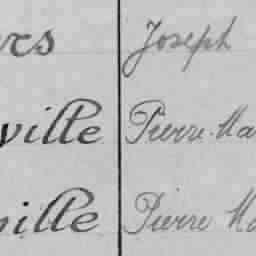 ers Joseph
ville Pierre Ma
ille Pierre Ma